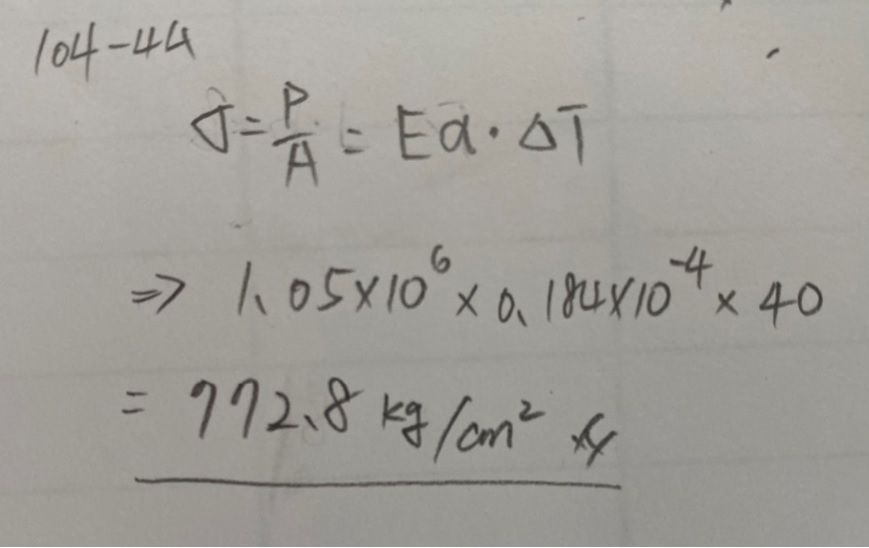 104-44
σ = P/A = Eα · ΔT
⇒ 1.05×10⁶ × 0.184×10⁻⁴ × 40
= 772.8 kg/cm²